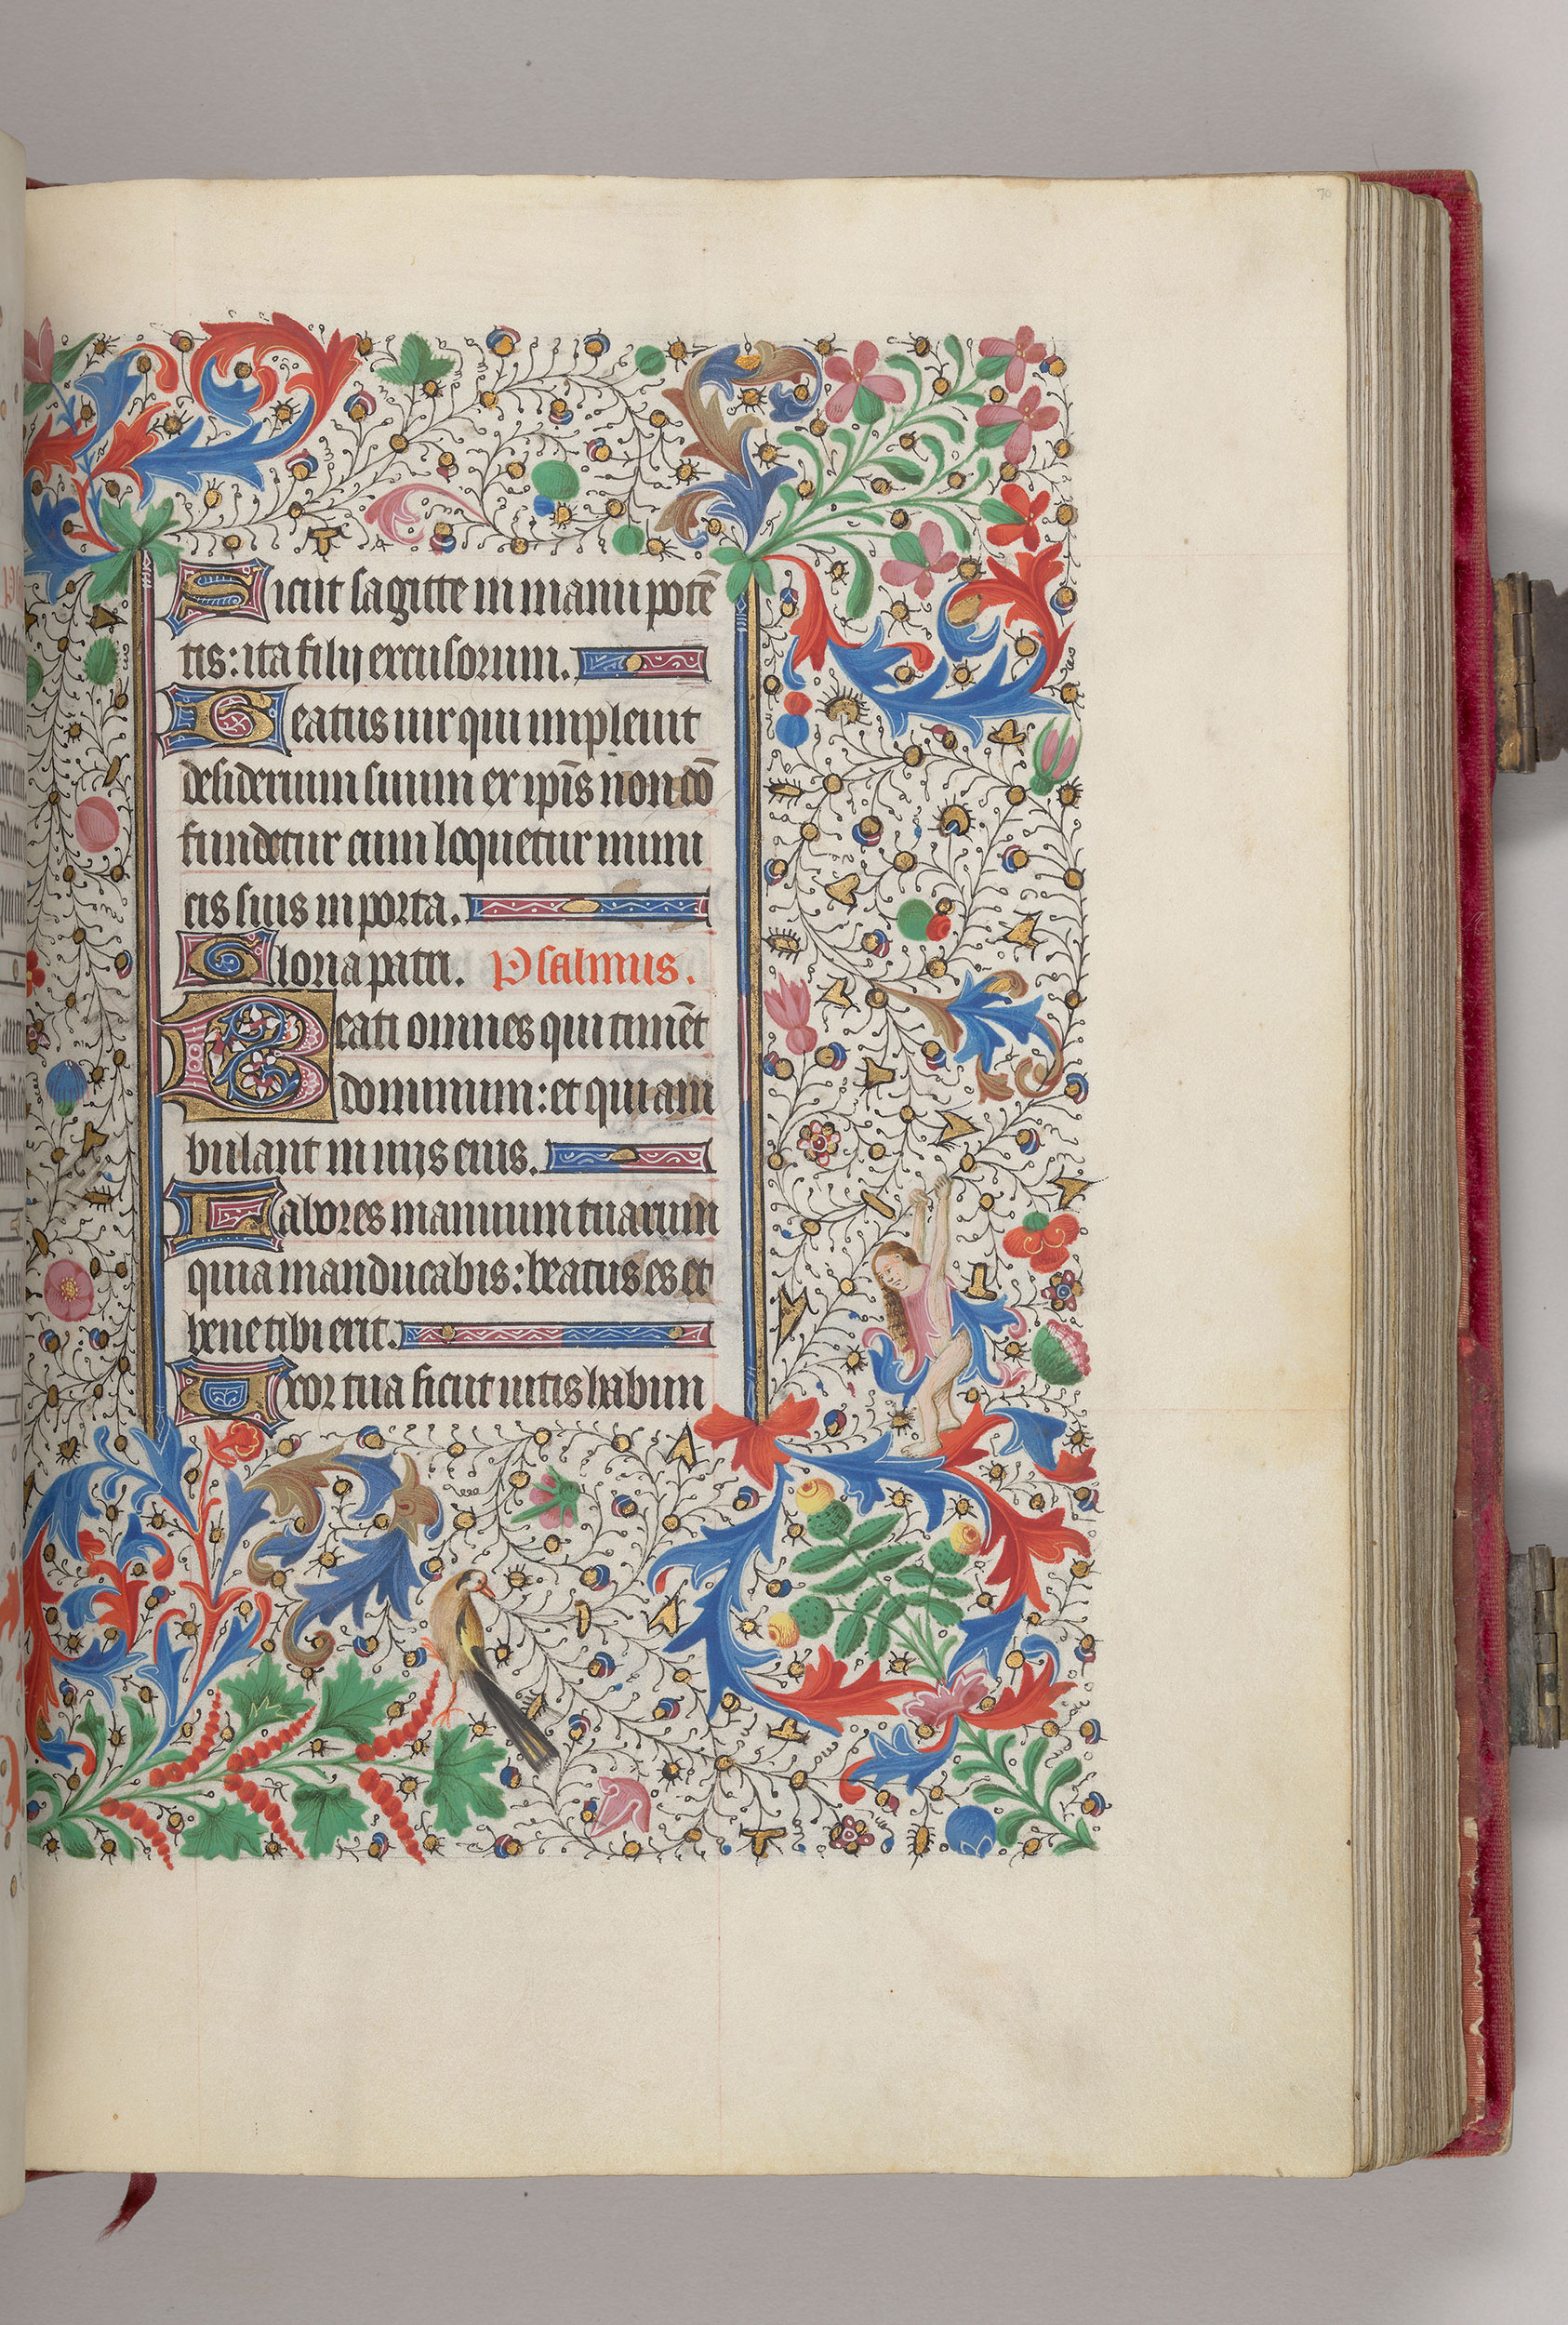 70
Sicut sagitte in manu potē
tis: ita filij excusorum.
Beatus uir qui impleuit
desiderium suum ex ip̄is non cō
fundetur cum loquetur inimi
cis suis in porta.
Gloria patri. Psalmus.
Beati omnes qui timēt
dominum: et qui am
bulant in uijs eius.
Labores manuum tuarum
quia manducabis: beatus es et
bene tibi erit.
Uxor tua sicut uitis habun